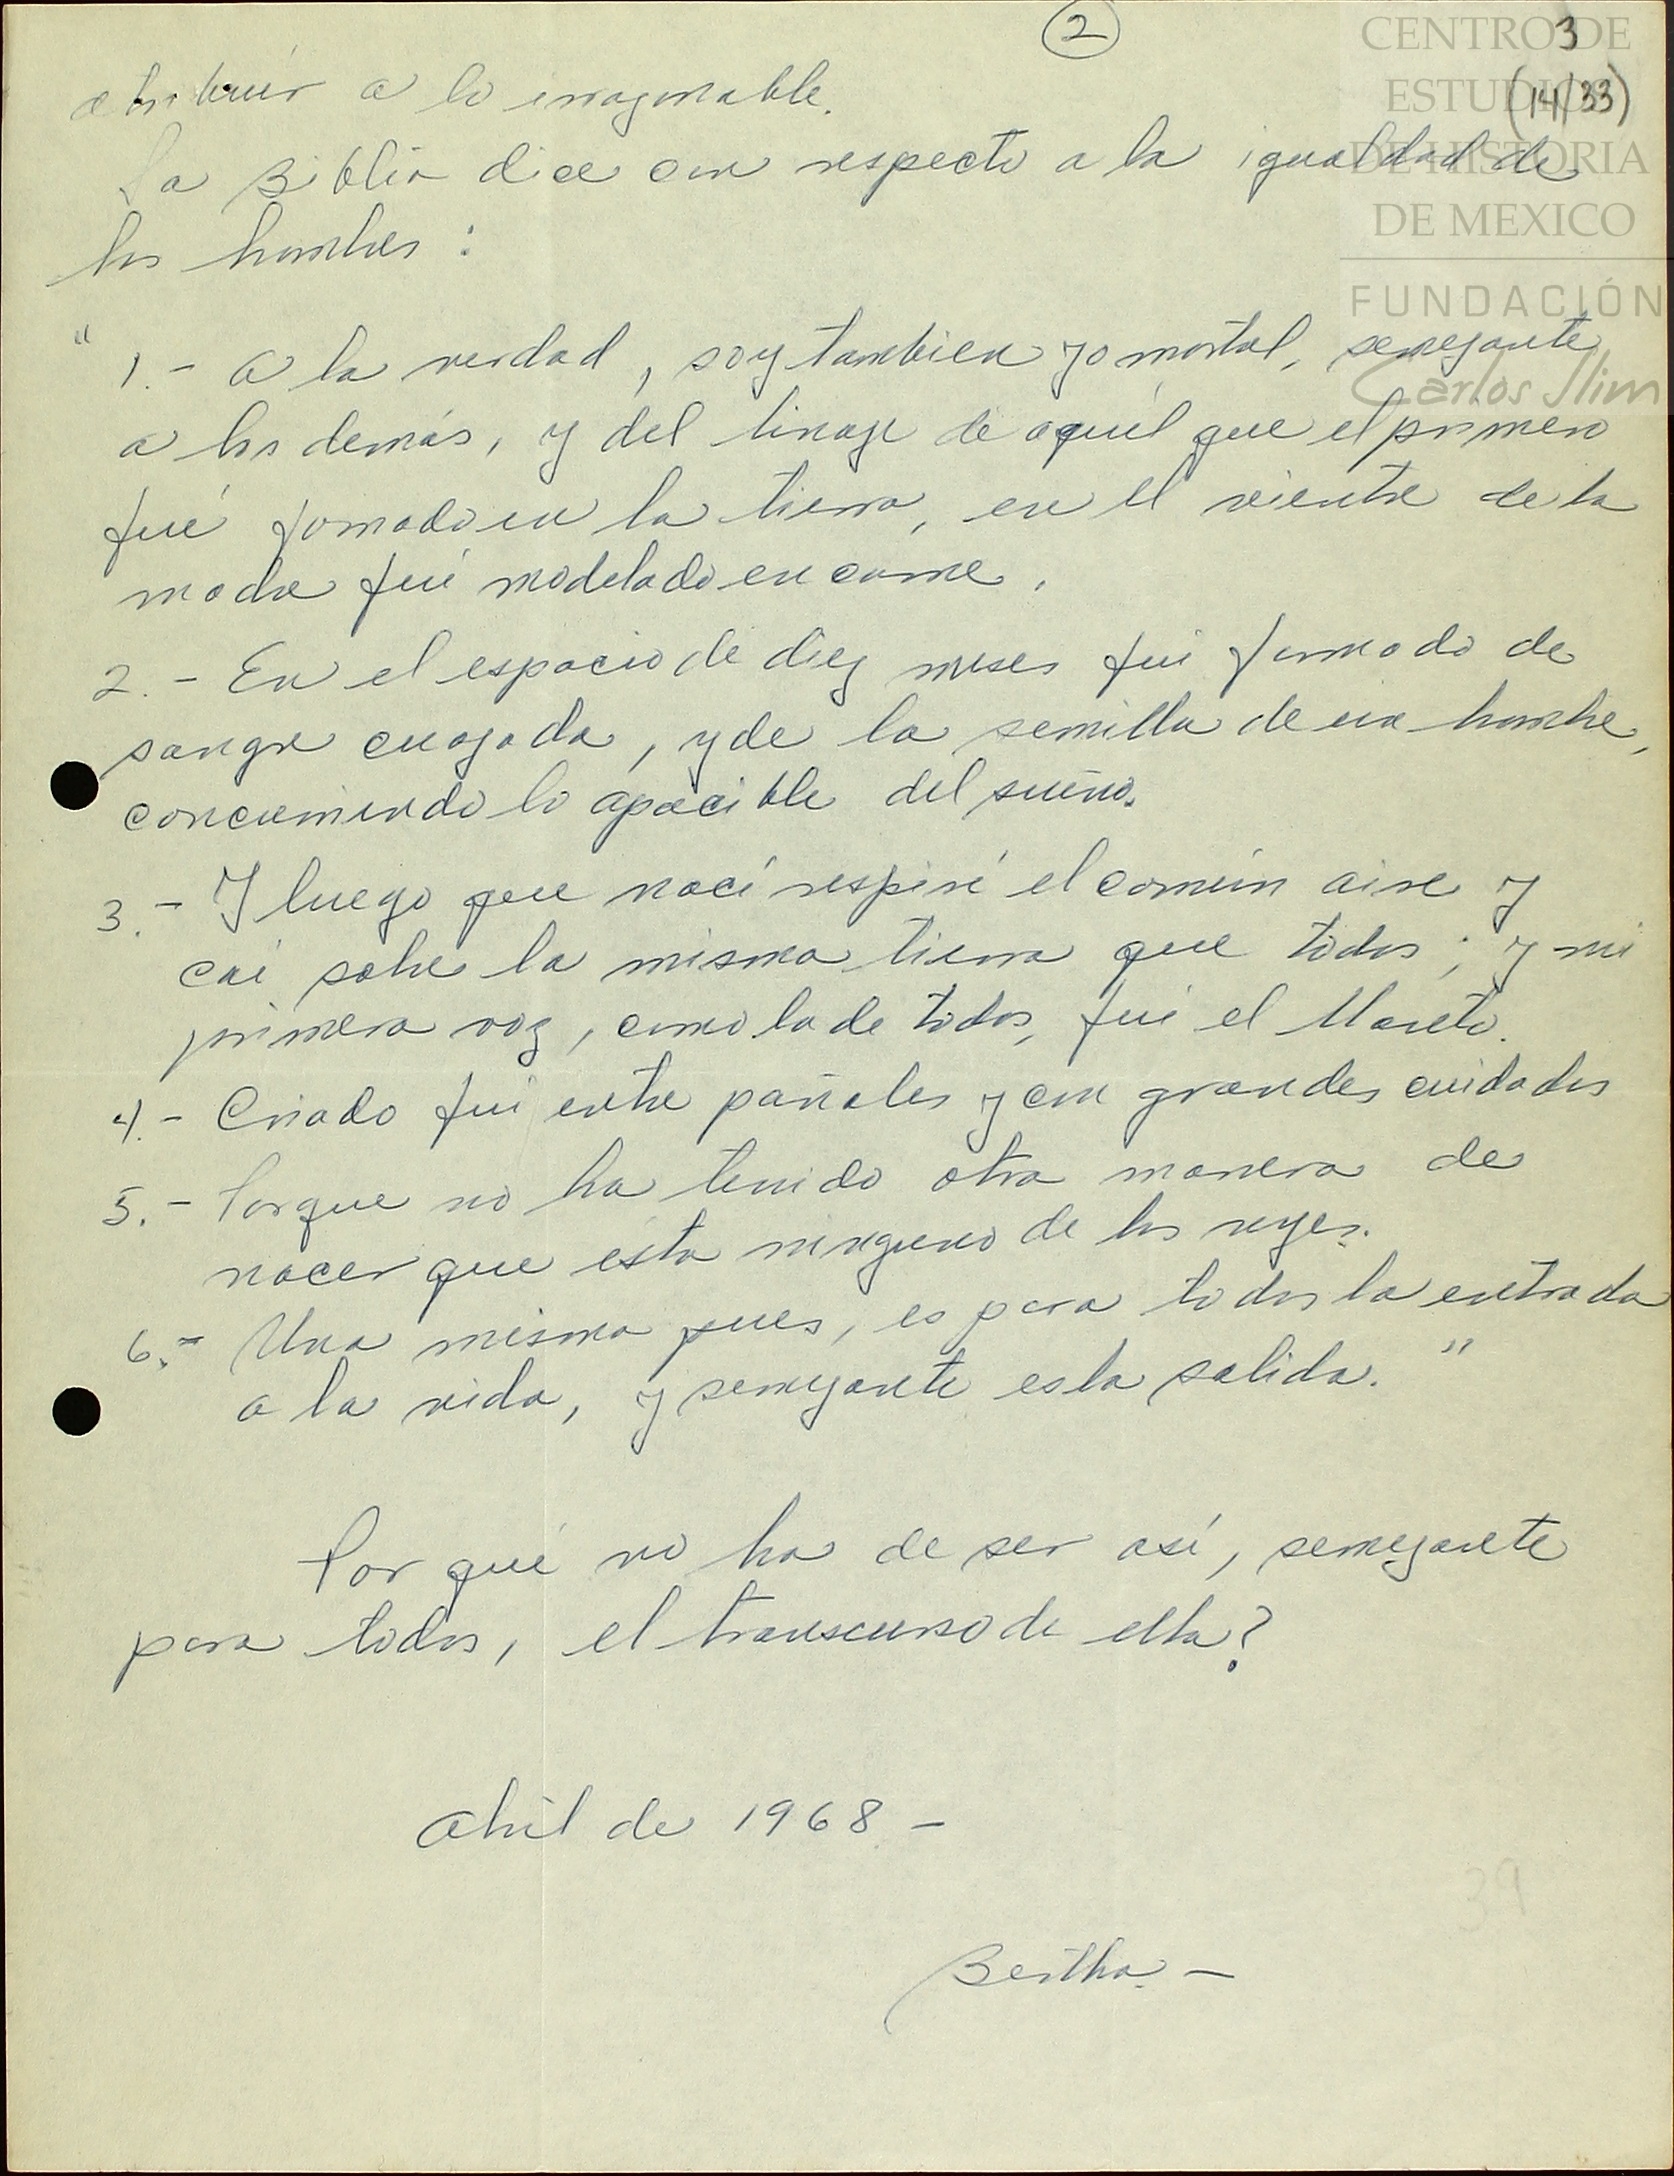 2
3
(14/33)
CENTRO DE
ESTUDIOS
DE HISTORIA
DE MEXICO
FUNDACIÓN
Carlos Slim
atribuír a lo irrazonable.
La Biblia dice con respecto a la igualdad de
los hombres :
" 1.- A la verdad, soy tambien yo mortal, semejante
a los demás, y del linaje de aquél que el primero
fué formado en la tierra, en el vientre de la
madre fuí modelado en carne.
2.- En el espacio de diez meses fuí formado de
sangre cuajada, y de la semilla de un hombre,
concurriendo lo apacible del sueño.
3.- Y luego que nací respiré el común aire y
caí sobre la misma tierra que todos; y mi
primera voz, como la de todos, fué el llanto.
4.- Criado fuí entre pañales y con grandes cuidados
5.- Porque no ha tenido otra manera de
nacer que ésta ninguno de los reyes.
6.- Una misma pues, es para todos la entrada
a la vida, y semejante es la salida. "
Por qué no ha de ser así, semejante
para todos, el transcurso de ella?
Abril de 1968 -
39
Bertha. -